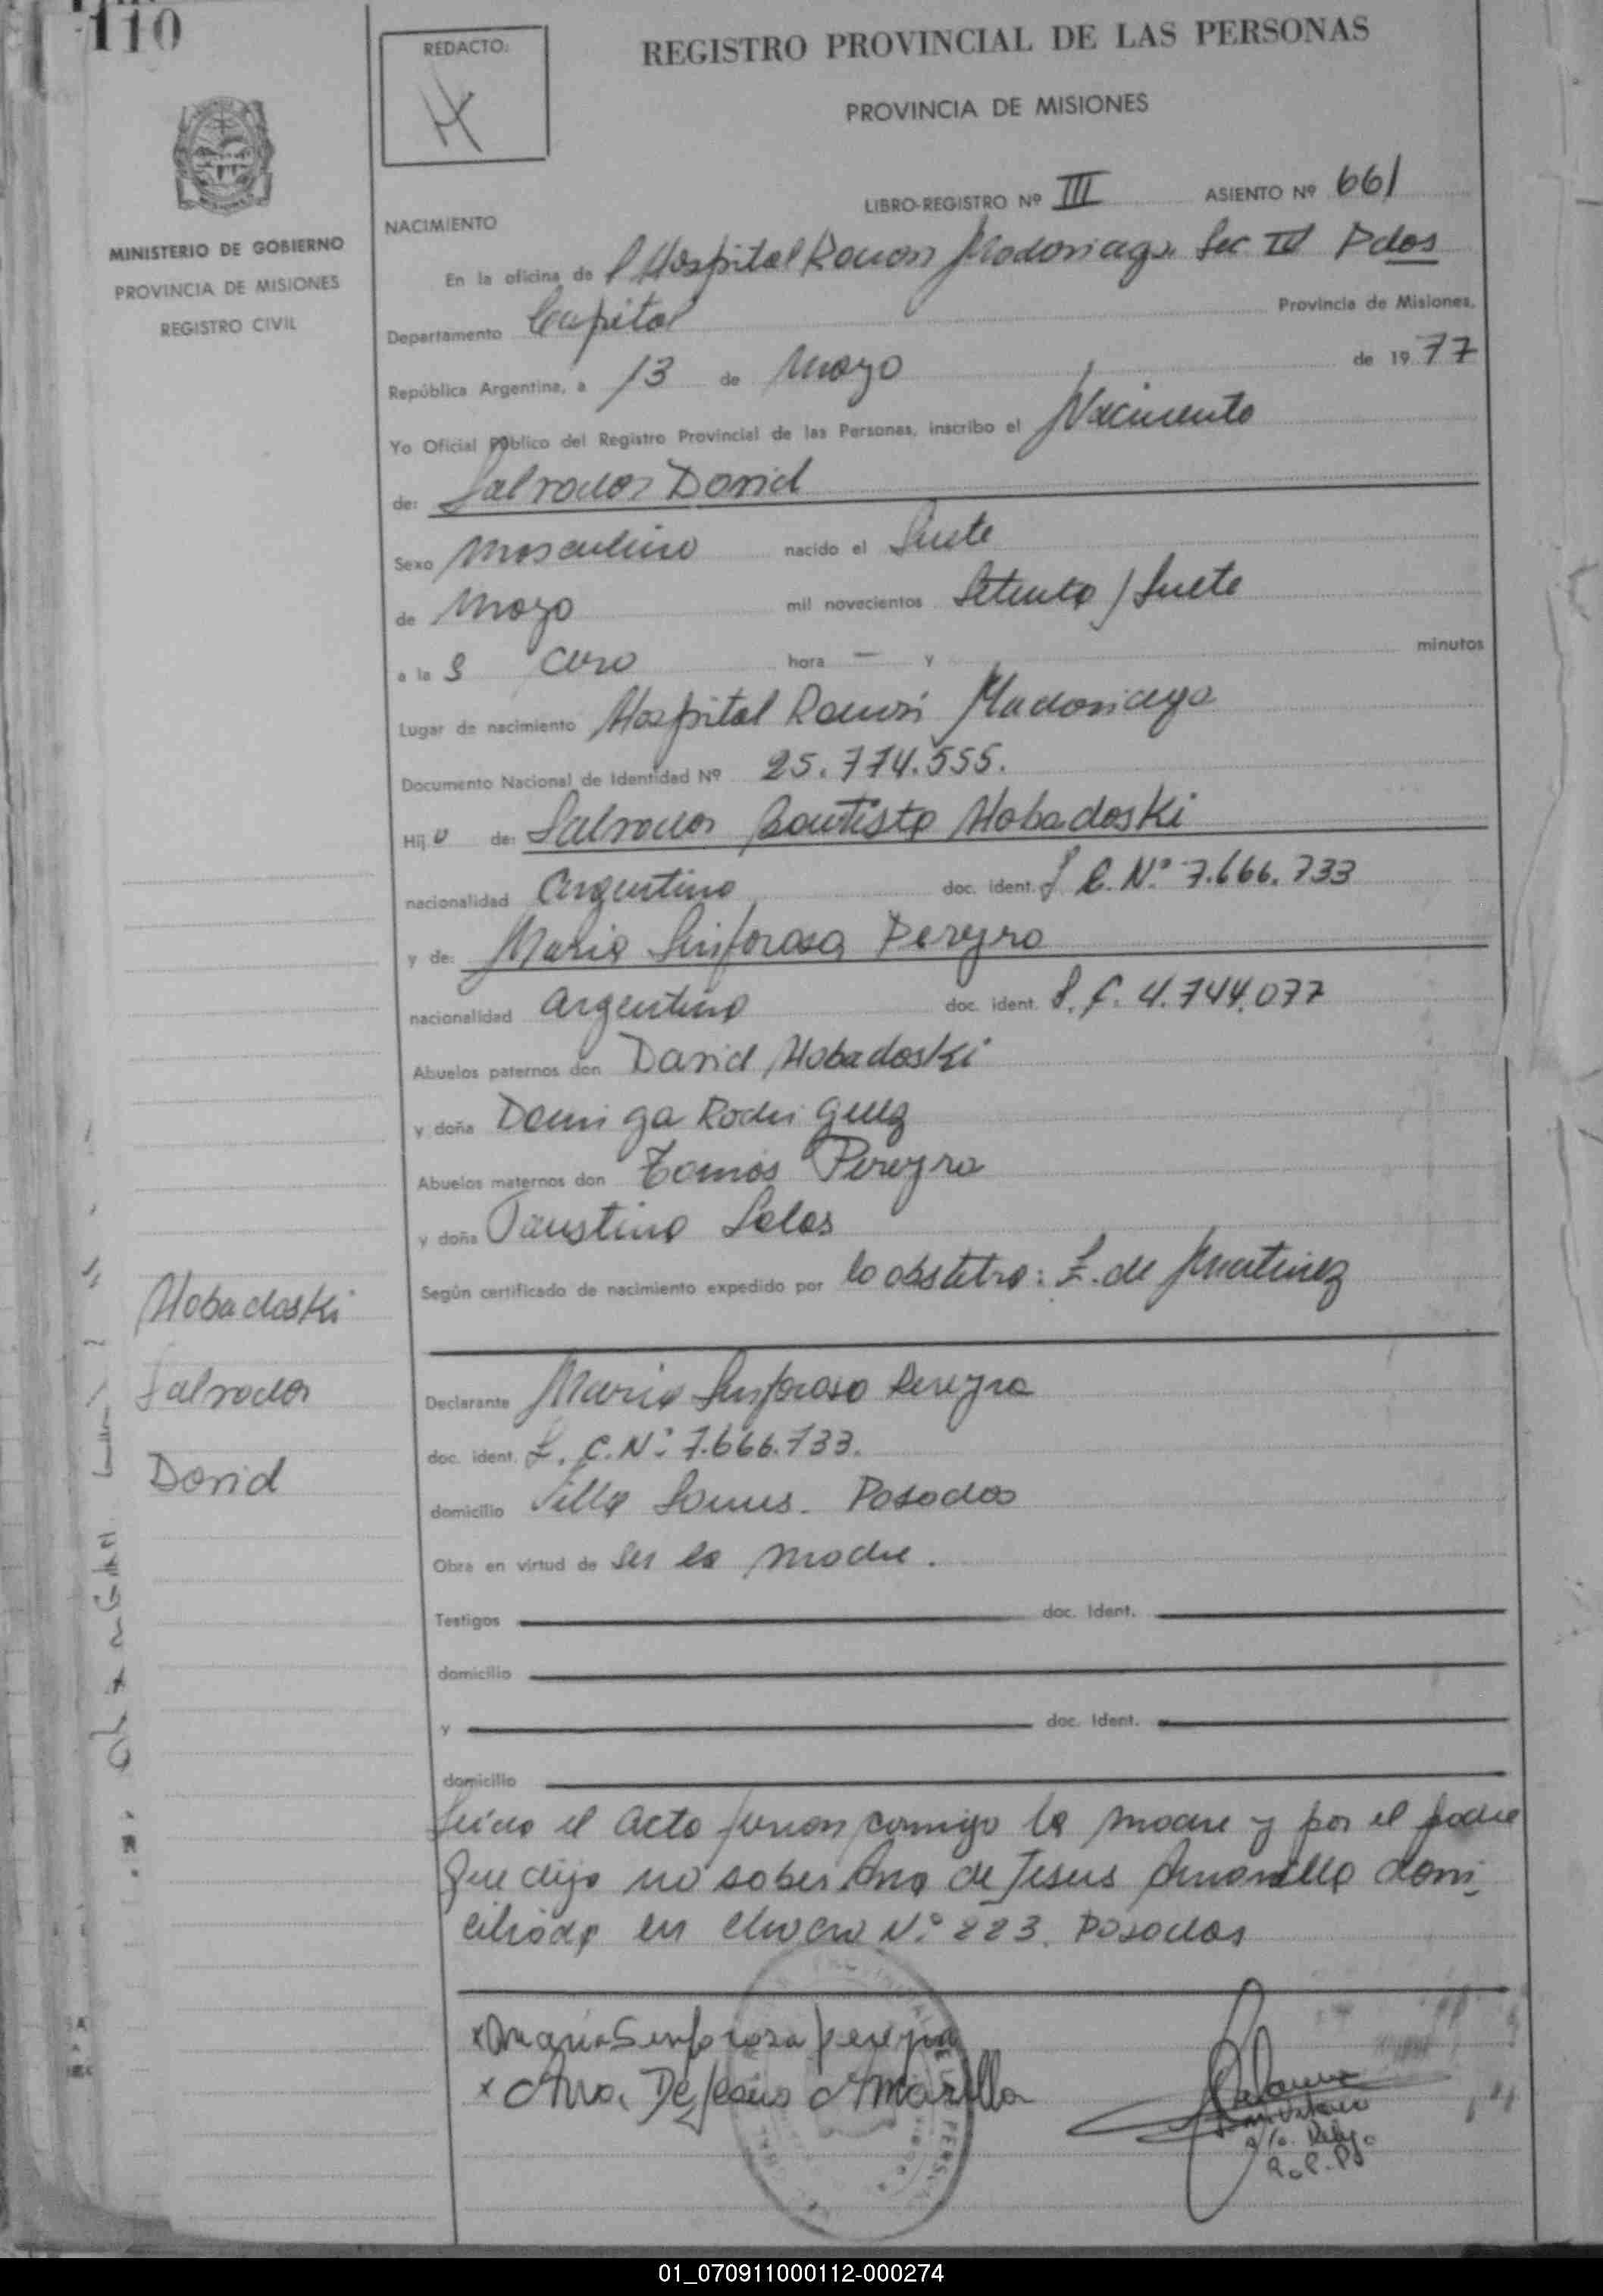 110
REDACTO:
REGISTRO PROVINCIAL DE LAS PERSONAS
PROVINCIA DE MISIONES
MINISTERIO DE GOBIERNO
PROVINCIA DE MISIONES
REGISTRO CIVIL
LIBRO-REGISTRO Nº III ASIENTO Nº 661
NACIMIENTO
En la oficina de Hospital Ramón Madariaga Sec III Pdas
Departamento Capital Provincia de Misiones,
República Argentina, a 13 de Mayo de 1977
Yo Oficial Público del Registro Provincial de las Personas, inscribo el Nacimiento
de: Salvador David
Sexo Masculino nacido el Siete
de Mayo mil novecientos Setenta / Siete
a la s cero hora — y minutos
Lugar de nacimiento Hospital Ramón Madariaga
Documento Nacional de Identidad Nº 25.774.555.
Hijo de: Salvador Bautista Hobadoski
nacionalidad argentino doc. ident. L E. Nº 7.666.733
y de: Maria Sinforosa Pereyra
nacionalidad argentina doc. ident. L.C. 4.744.077
Abuelos paternos don David Hobadoski
y doña Dominga Rodriguez
Abuelos maternos don Tomás Pereyra
y doña Faustina Salas
Según certificado de nacimiento expedido por la obstetra: E. de Martinez
Hobadoski
Salvador
David
Declarante Maria Sinforosa Pereyra
doc. ident. L. C. Nº 7.666.733.
domicilio Villa Posadas
Obra en virtud de ser la madre.
Testigos doc. Ident.
domicilio
y doc. Ident.
domicilio
Leída el acta firman conmigo la madre y por el padre
que dijo no saber Ana de Jesus Amarilla domi
ciliada en chacra Nº 223. Posadas
x Maria Sinforosa Pereyra
x Ana De Jesus Amarilla
01_070911000112-000274